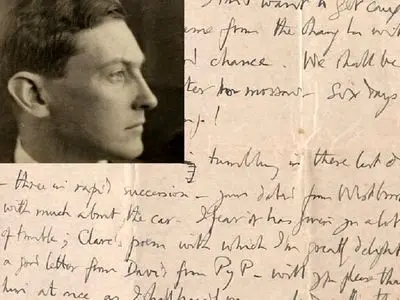 want to get caug
ame from the Chang La wit
d chance. We shall be
ter tomorrow - Six days
!
tumbling in these last d
- three in rapid succession - yours dated from Westbroo
with much about the car - I fear it has given you a lot
of trouble; Clare's poem with which I'm greatly delight
a good letter from David from PyP - will you please tha
him at once as I shall